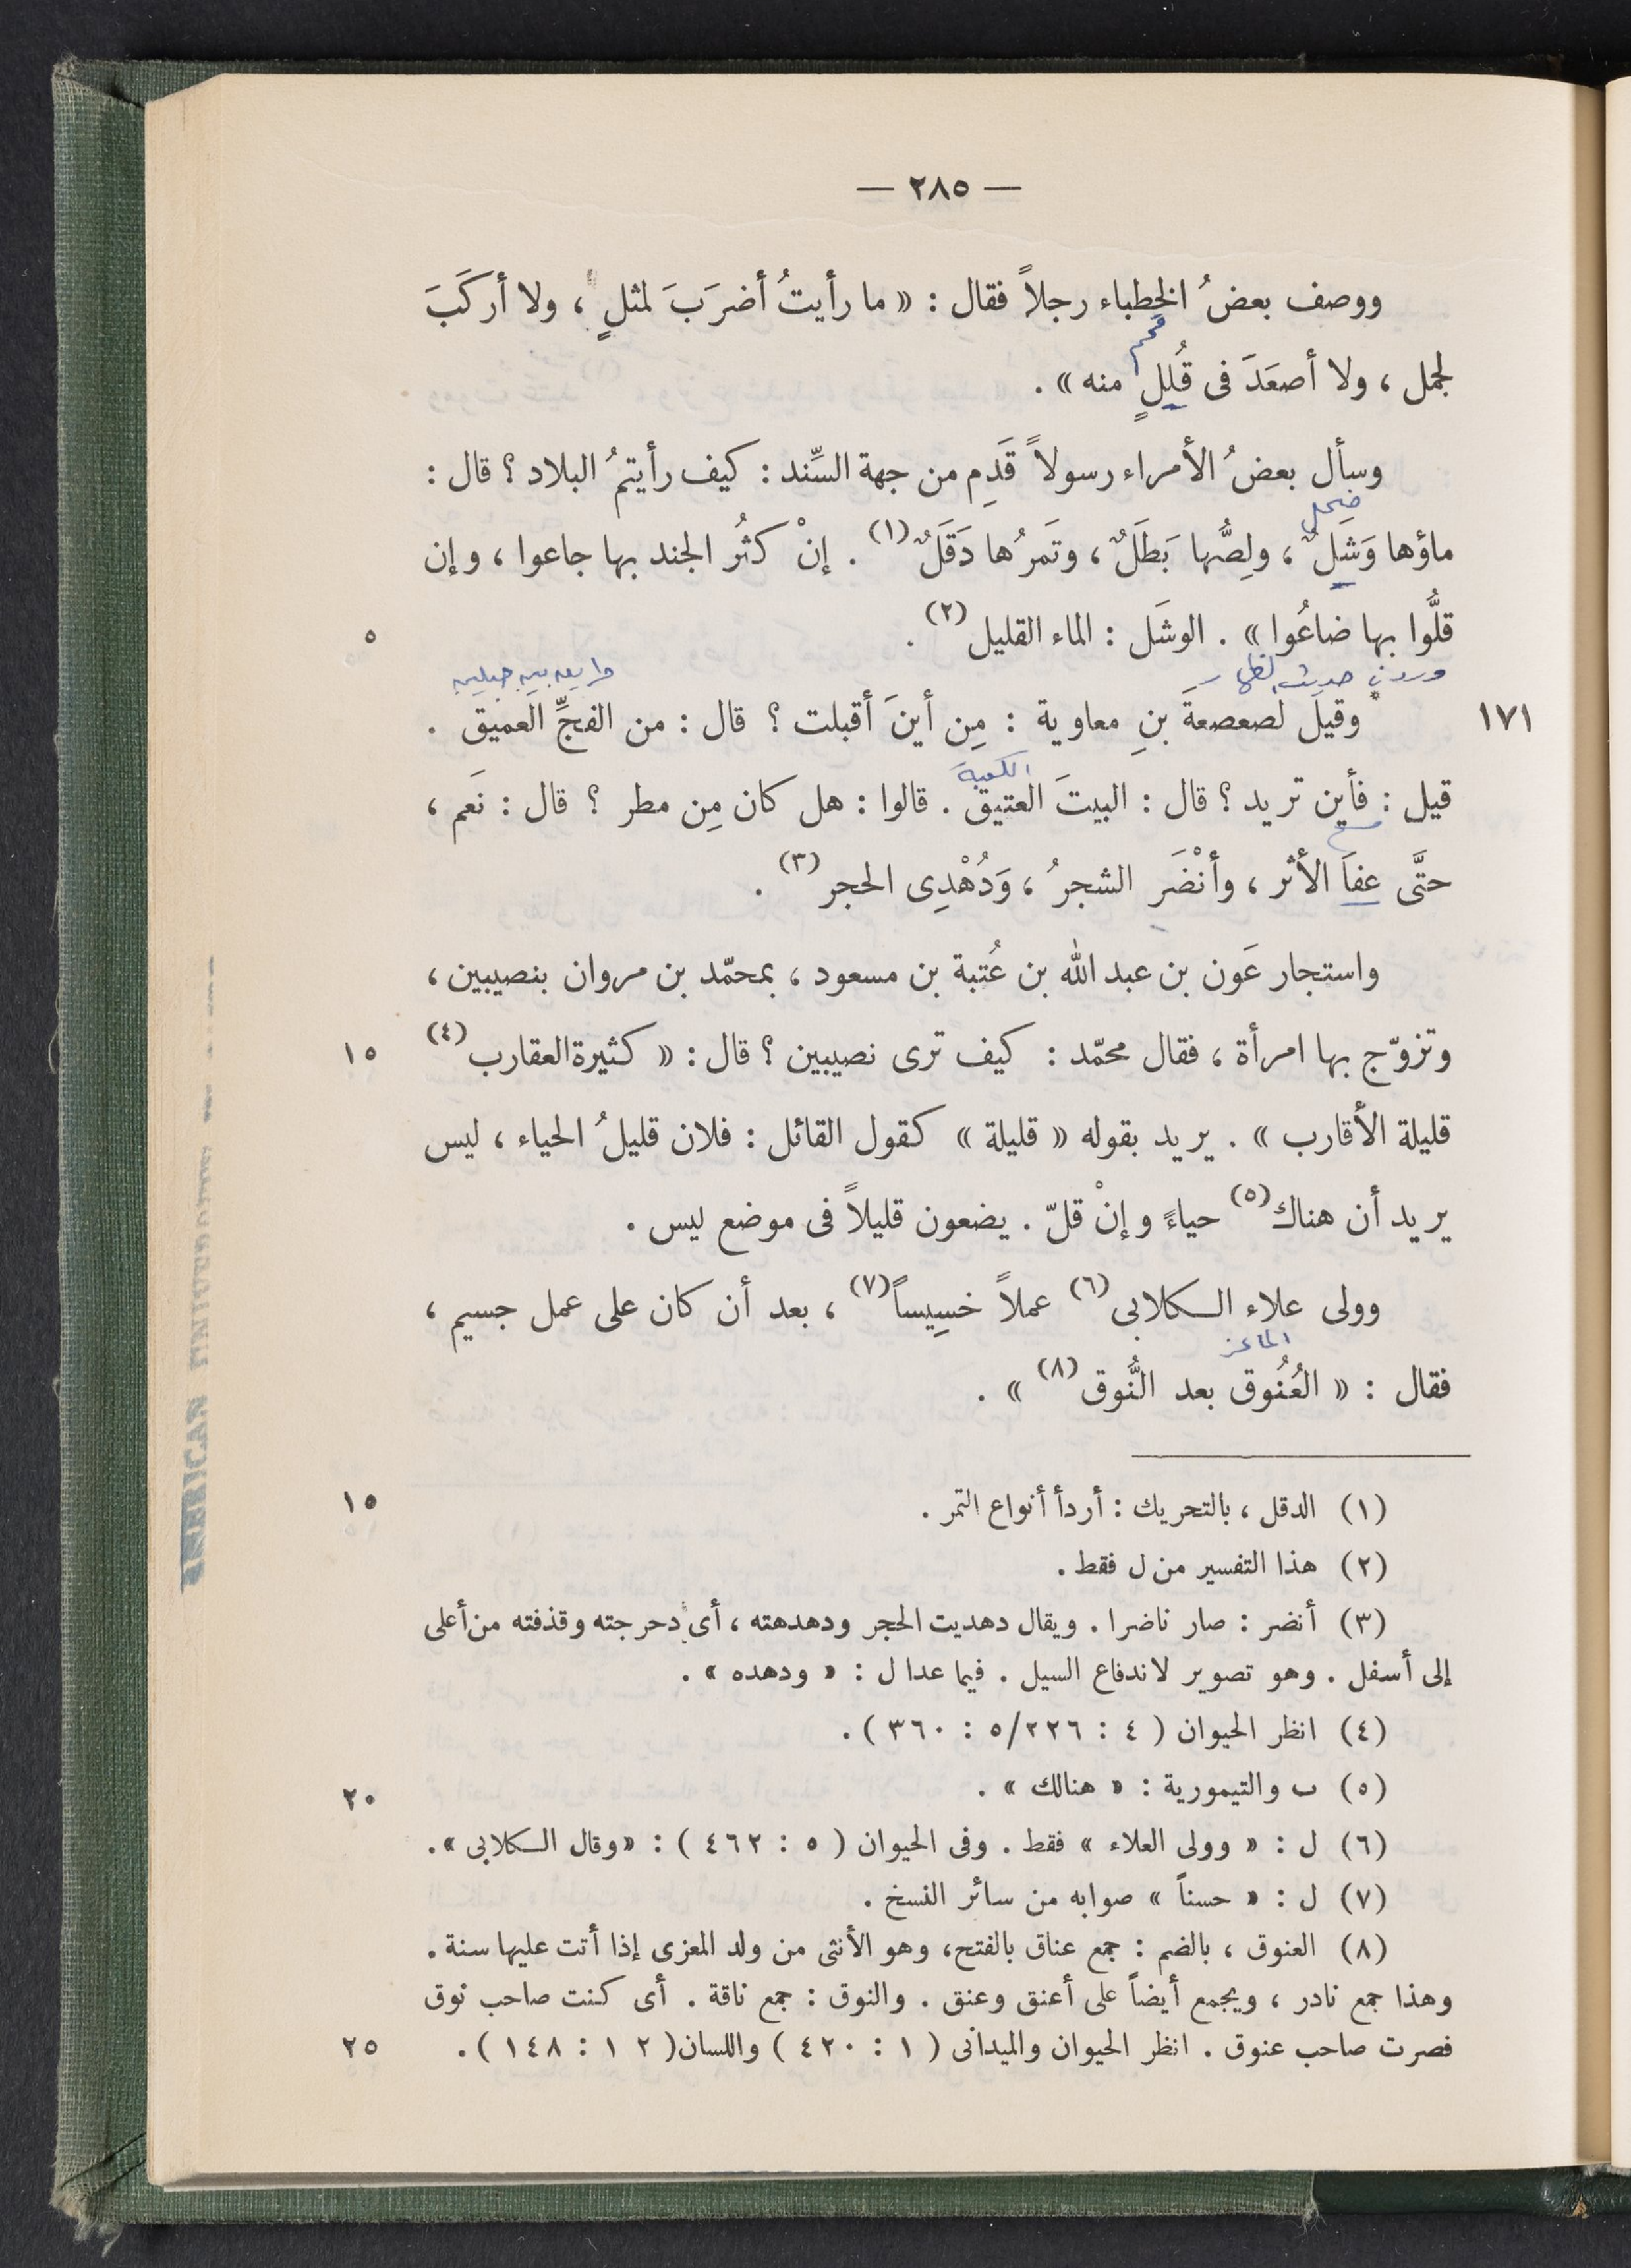 — ٢٨٥ —
ووصف بعضُ الخطباء رجلاً فقال : « ما رأيتُ أضرَبَ لمثلٍ ، ولا أركَبَ
لجمل ، ولا أصعَدَ فى قُلَلٍ منه » .
قمم
وسأل بعضُ الأمراء رسولاً قَدِم من جهة السِّند : كيف رأيتمُ البلاد ؟ قال :
ضحل
ماؤها وَشَلٌ ، ولِصُّها بَطَلٌ ، وتَمرُها دَقَلٌ (١) . إنْ كثُر الجند بها جاعوا ، وإن
قلُّوا بها ضاعُوا » . الوشَل : الماء القليل (٢) .
٥
حديث
١٧١
وقيل لصعصعةَ بنِ معاوية : مِن أينَ أقبلت ؟ قال : من الفجِّ العميق .
الكعبة
قيل : فأين تريد ؟ قال : البيتَ العتيق . قالوا : هل كان مِن مطر ؟ قال : نَعَم ،
حتَّى عفاَ الأثر ، وأنْضَر الشجرُ ، وَدُهْدِى الحجر (٣) .
واستجار عَون بن عبد الله بن عُتبة بن مسعود ، بمحمّد بن مروان بنصيبين ،
وتزوّج بها امرأة ، فقال محمّد : كيف ترى نصيبين ؟ قال : « كثيرة العقارب (٤)
١٥
قليلة الأقارب » . يريد بقوله « قليلة » كقول القائل : فلان قليلُ الحياء ، ليس
يريد أن هناك (٥) حياءً وإنْ قلّ . يضعون قليلاً فى موضع ليس .
وولى علاء الكلابى (٦) عملاً خسِيساً (٧) ، بعد أن كان على عمل جسيم ،
الماعز
فقال : « العُنُوق بعد النُّوق (٨) » .
(١) الدقل ، بالتحريك : أردأ أنواع التمر .
١٥
(٢) هذا التفسير من ل فقط .
(٣) أنضر : صار ناضرا . ويقال دهديت الحجر ودهدهته ، أى دحرجته وقذفته من أعلى
إلى أسفل . وهو تصوير لاندفاع السيل . فيما عدا ل : « ودهده » .
(٤) انظر الحيوان ( ٤ : ٢٢٦/٥ : ٣٦٠ ) .
(٥) ب والتيمورية : « هنالك » .
٢٠
(٦) ل : « وولى العلاء » فقط . وفى الحيوان ( ٥ : ٤٦٢ ) : « وقال الكلابى » .
(٧) ل : « حسناً » صوابه من سائر النسخ .
(٨) العنوق ، بالضم : جمع عناق بالفتح ، وهو الأنثى من ولد المعزى إذا أتت عليها سنة .
وهذا جمع نادر ، ويجمع أيضاً على أعنق وعنق . والنوق : جمع ناقة . أى كنت صاحب نوق
فصرت صاحب عنوق . انظر الحيوان والميدانى ( ١ : ٤٢٠ ) واللسان ( ١٢ : ١٤٨ ) .
٢٥